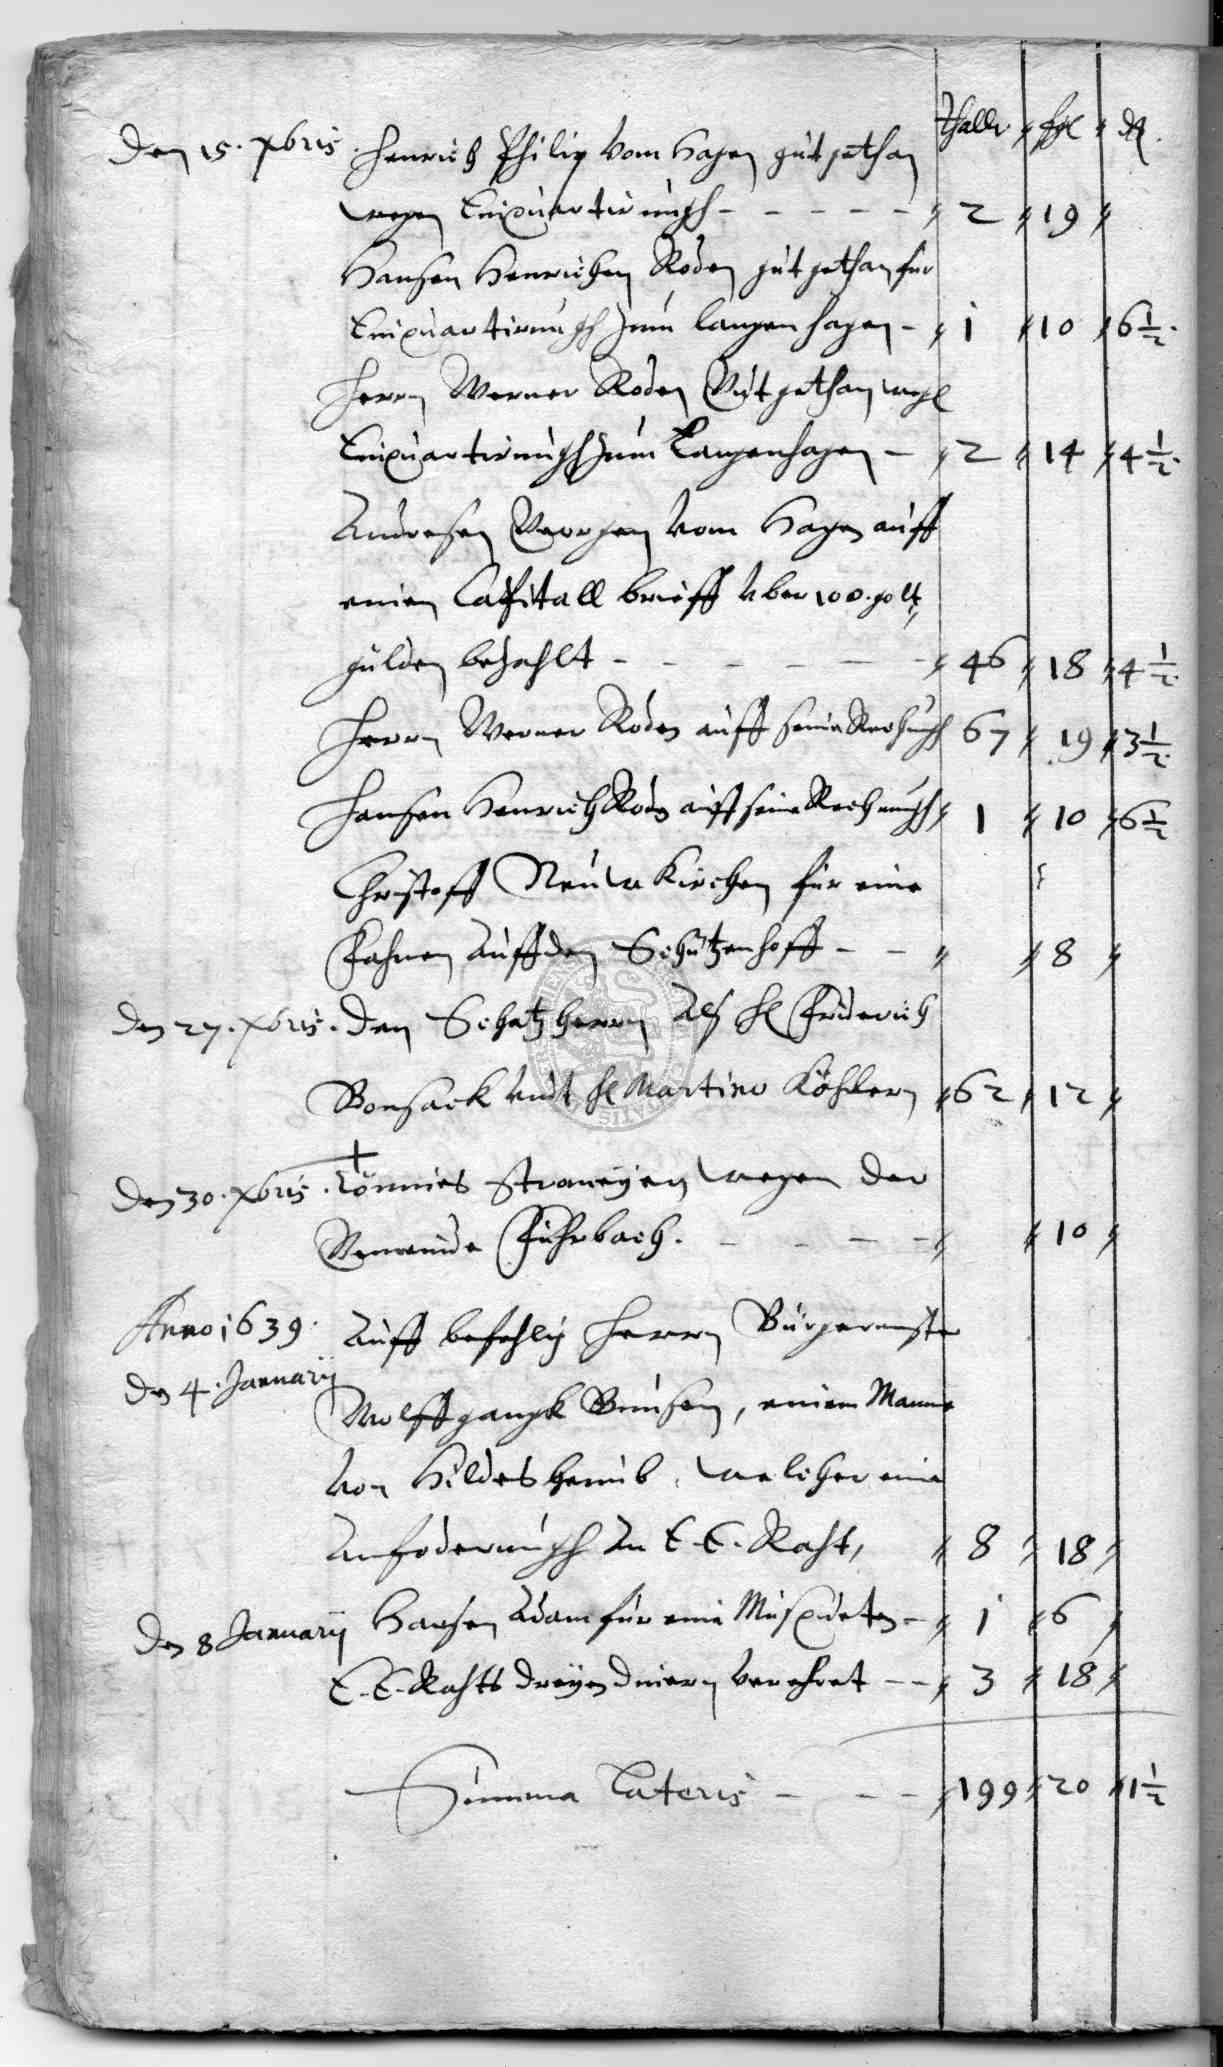 Thaller fgl d
Den 15. Xbris Henrich Philip vom Hagen gut gethan
wegen Einquartirungh - - - - - 2 19
Hansen Henrichen Roden gut gethan für
Einquartirungh zum langenhagen - 1 10 6 1/2
Herrn Werner Roden Gut gethan wegen
Einquartirungh zum Langenhagen - 2 14 4 1/2
Andresen Georgen vom Hagen auff
einen Capitall brieff vber 100. golt
gülden bezahlt - - - - - - 46 18 4 1/2
Herrn Werner Roden auff seine Rechnungh 67 19 3 1/2
Hansen Henrich Roden auff seine Rechnungh 1 10 6 1/2
Christoff Neuwkirchen für eine
Fahnen auff den Schützenhoff - - 8
Den 27. Xbris. Den Schatzherrn Alß H Friderich
Bonsack undt H Martino Köhlern 62 12
Den 30. Xbris. Tönnies wegen der
Gemeinde Fuhrbach. - - - - 10
Anno 1639. Auff befehlig Herrn Bürgermeister
Den 4. Januarij
Wolffgangk Bunsen, einem Manne
von Hildesheimb, welcher eine
Anfoderungh an E. E. Raht, 8 18
Den 8 Januarij Hansen Adam für eine Musqueten - 1 6
E. E. Rahts dreyen dienern verehret - - 3 18
Summa Lateris - - - 199 20 1 1/2